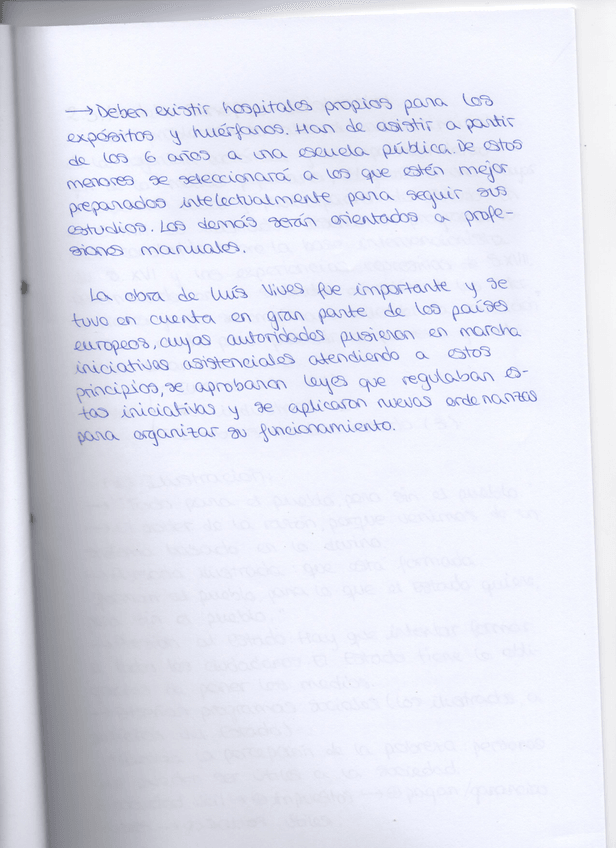 → Deben existir hospitales propios para los
expósitos y huérfanos. Han de asistir a partir
de los 6 años a una escuela pública. De estos
menores se seleccionará a los que estén mejor
preparados intelectualmente para seguir sus
estudios. Los demás serán orientados a profe-
siones manuales.
La obra de Luís Vives fue importante y se
tuvo en cuenta en gran parte de los países
europeos, cuyas autoridades pusieron en marcha
iniciativas asistenciales atendiendo a estos
principios, se aprobaron leyes que regulaban es-
tas iniciativas y se aplicaron nuevas ordenanzas
para organizar su funcionamiento.